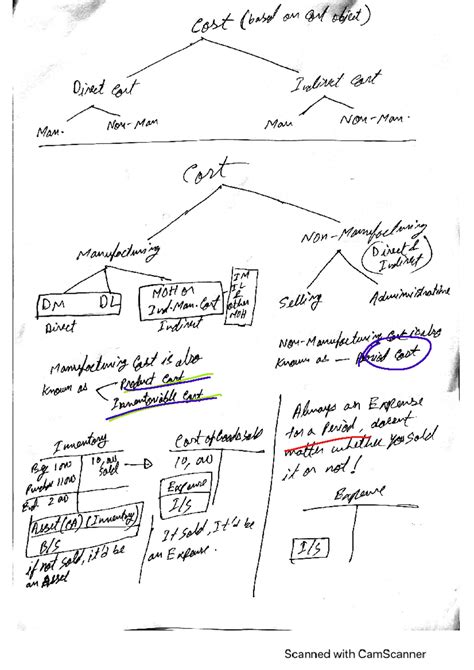 Cost (based on Cost object)
Direct Cost
Indirect Cost
Man.
Non-Man
Man
Non-Man.
Cost
Manufacturing
Non-Manufacturing
Direct &
Indirect
DM DL
Direct
MOH or
Ind. Man. Cost
Indirect
IM
IL
&
other
MOH
Selling
Administrative
Manufacturing Cost is also
Known as
Product Cost
Inventoriable Cost
Non-Manufacturing Cost is also
Known as — Period Cost
Always an Expense
for a Period, doesnt
matter whether you sold
it or not!
Expense
I/S
Inventory
Beg
Purchase
End.
sold
Asset (CA) (Inventory)
B/S
if not sold, it'd be
an Asset
Cost of Goods sold
Expense
I/S
If sold, It'd be
an Expense.
Scanned with CamScanner